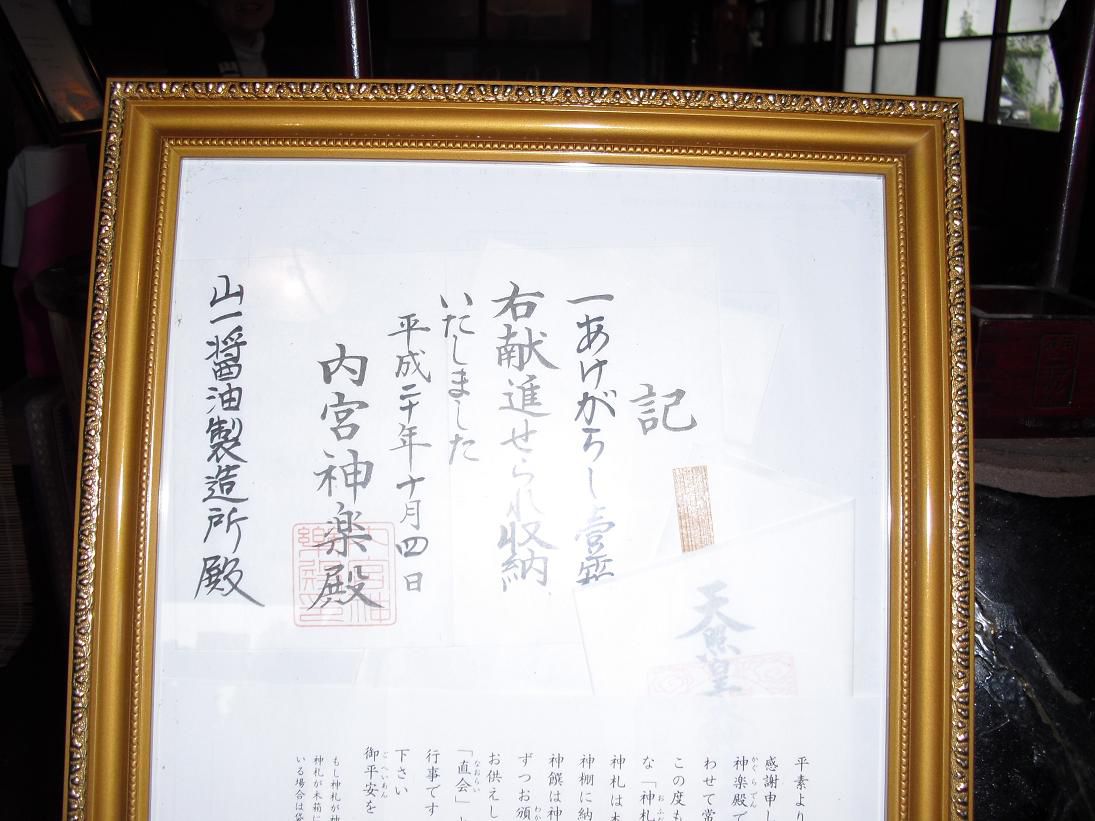 記
一あけがらし壱
右献進せられ収納
いたしました
平成二十年十月四日
内宮神楽殿
山一醤油製造所殿
天照皇
平素より
感謝申し
神楽殿で
わせて常
この度も
な「神札
神札は本
神棚に納
神饌は神
ずつお頒
お供えし
「直会」
行事です
下さい
御平安を
もし神札が神
神札が木箱に
いる場合は袋